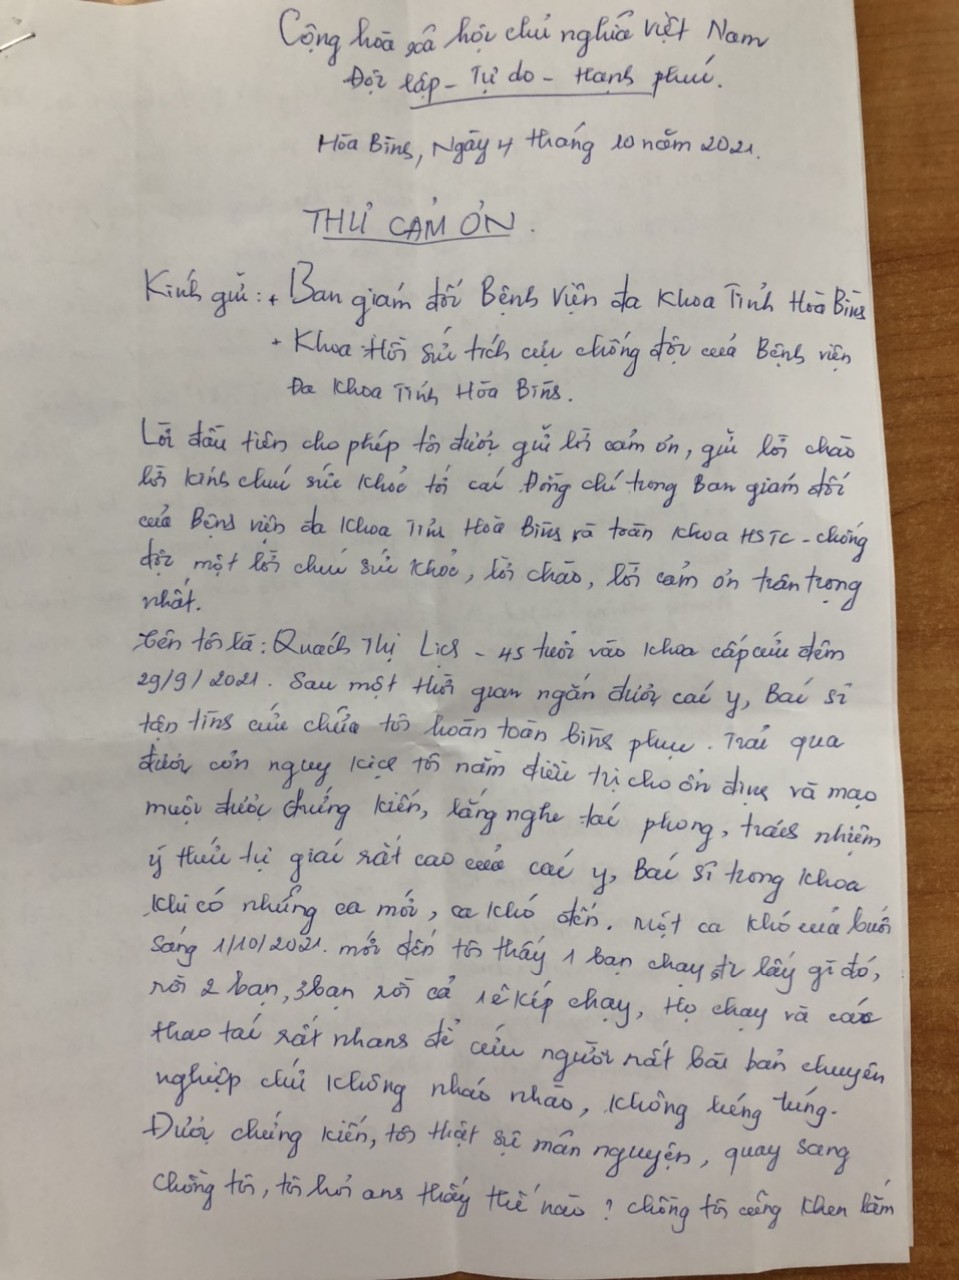 Cộng hòa xã hội chủ nghĩa Việt Nam
Độc lập - Tự do - Hạnh phúc.
Hòa Bình, Ngày 4 tháng 10 năm 2021.
THƯ CẢM ƠN.
Kính gửi: + Ban giám đốc Bệnh Viện đa khoa Tỉnh Hoà Bình
+ Khoa Hồi sức tích cực chống độc của Bệnh viện
Đa khoa Tỉnh Hòa Bình.
Lời đầu tiên cho phép tôi được gửi lời cảm ơn, gửi lời chào
lời kính chúc sức khỏe tới các Đồng chí trong Ban giám đốc
của Bệnh viện đa khoa Tỉnh Hoà Bình và toàn khoa HSTC - chống
độc một lời chúc sức khỏe, lời chào, lời cảm ơn trân trọng
nhất.
Tên tôi là: Quách Thị Lịch - 45 tuổi vào khoa cấp cứu đêm
29/9/2021. Sau một thời gian ngắn được các y, Bác sĩ
tận tình cứu chữa tôi hoàn toàn bình phục. Trải qua
được cơn nguy kịch tôi nằm điều trị cho ổn định và mạo
muội được chứng kiến, lắng nghe tác phong, trách nhiệm
ý thức tự giác rất cao của các y, Bác sĩ trong khoa
khi có những ca mới, ca khó đến. Một ca khó của buổi
sáng 1/10/2021. mới đến tôi thấy 1 bạn chạy đi lấy gì đó,
rồi 2 bạn, 3 bạn rồi cả 1 ê kíp chạy, Họ chạy và các
thao tác rất nhanh để cứu người rất bài bản chuyên
nghiệp chứ không nháo nhào, không lúng túng.
Được chứng kiến, tôi thật sự mãn nguyện, quay sang
chồng tôi, tôi hỏi anh thấy thế nào? chồng tôi cũng khen lắm